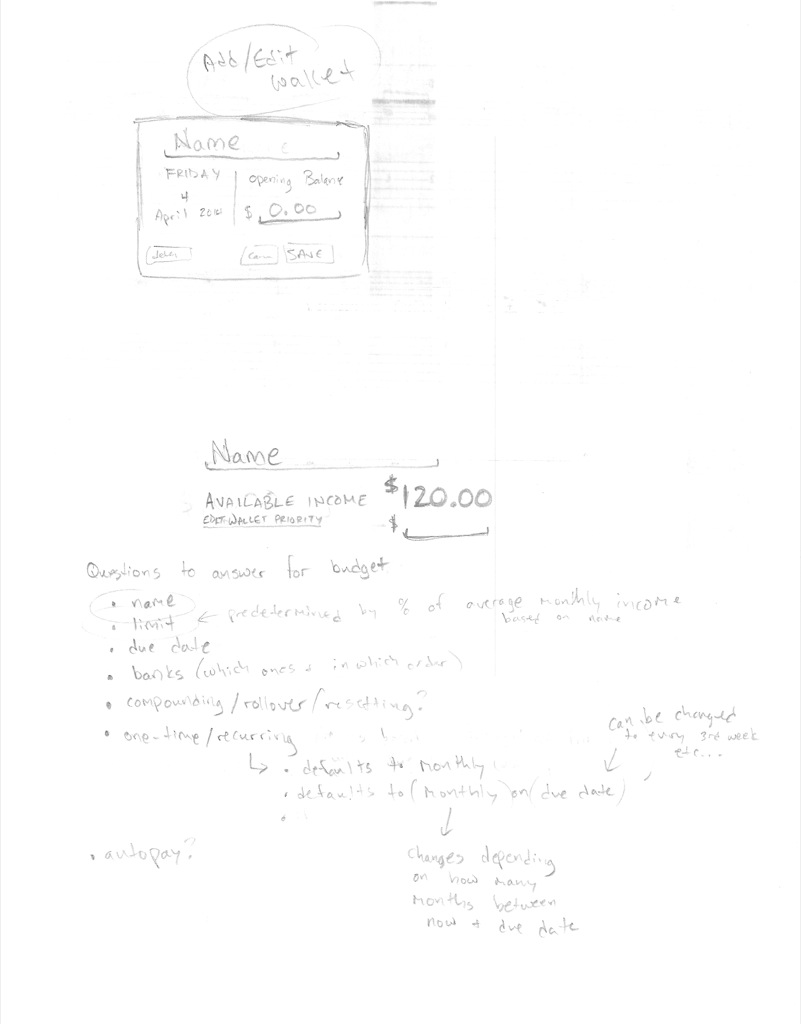 Add/Edit
wallet
Name
FRIDAY
4
April
Opening Balance
$ 0.00
SAVE
Name
AVAILABLE INCOME $120.00
EDIT WALLET PRIORITY $
Questions to answer for budget
• name
• limit ← predetermined by % of average monthly income
based on name
• due date
• banks (which ones + in which order)
• compounding/rollover/resetting?
• one-time/recurring
can be changed
to every 3rd week
etc...
↳ • defaults to monthly
• defaults to (monthly) on (due date)
•
• autopay?
changes depending
on how many
months between
now + due date